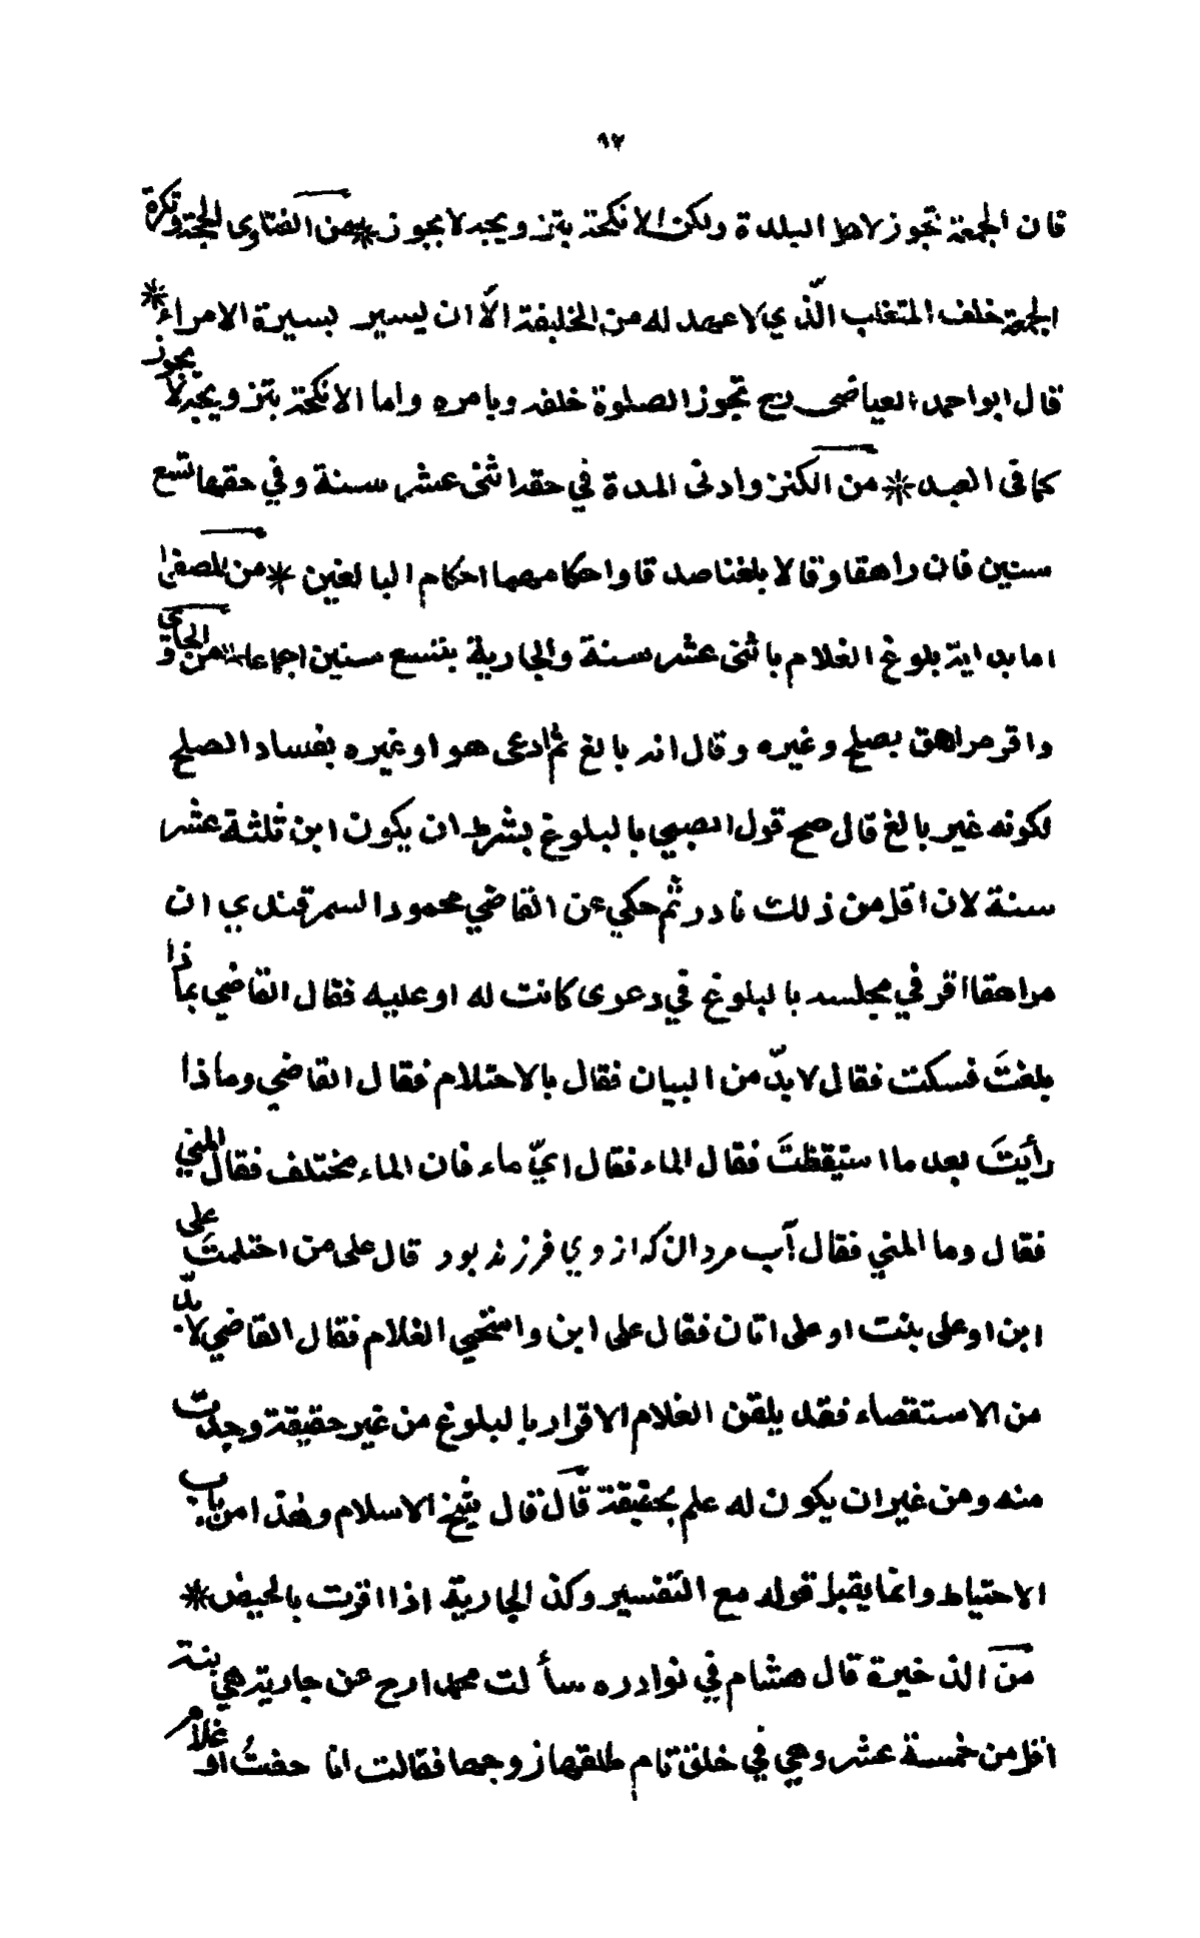 ٩٧
فان الجمعة تجوز لاهل البلدة ولكن الانكحة بتزويجه لا يجوز * من الفتاوى الحجة وتكره
الجمعة خلف المتغلب الّذي لا عهد له من الخليفة الّا ان يسير بسيرة الامراء *
قال ابو احمد العياضى رح تجوز الصلوة خلفه وبامره واما الانكحة بتزويجه لا يجوز
كما فى العبد * من الكنز وادنى المدة في حقه اثنى عشر سنة وفي حقها تسع
سنين فان راهقا وقالا بلغنا صدقا واحكامهما احكام البالغين * من المصفى
اما بداية بلوغ الغلام باثنى عشر سنة والجارية بتسع سنين اجماعا * من الحاوي و
واقر مراهق بصلح وغيره وقال انه بالغ ثم ادعى هو او غيره بفساد الصلح
لكونه غير بالغ قال صح قول الصبي بالبلوغ بشرط ان يكون ابن ثلثة عشر
سنة لان اقل من ذلك نادر ثم حكي عن القاضي محمود السمرقندي ان
مراهقا اقر في مجلسه بالبلوغ في دعوى كانت له او عليه فقال القاضي بماذا
بلغتَ فسكت فقال لا بدّ من البيان فقال بالاحتلام فقال القاضي وماذا
رأيتَ بعد ما استيقظتَ فقال الماء فقال ايّ ماء فان الماء مختلف فقال المني
فقال وما المني فقال آب مردان كه از وي فرزند بود قال على من احتلمتَ على
ابن او على بنت او على اتان فقال على ابن واستحيي الغلام فقال القاضي لا بدّ
من الاستقصاء فقد يلقن الغلام الاقرار بالبلوغ من غير حقيقة وجدت
منه ومن غير ان يكون له علم بحقيقة قال قال شيخ الاسلام وهذا من باب
الاحتياط وانما يقبل قوله مع التفسير وكذا الجارية اذا اقرت بالحيض *
من الذخيرة قال هشام في نوادره سألت محمدا رح عن جارية هي بنة
اقل من خمسة عشر وهي في خلق تام طلقها زوجها فقالت انا حضتُ او غلام